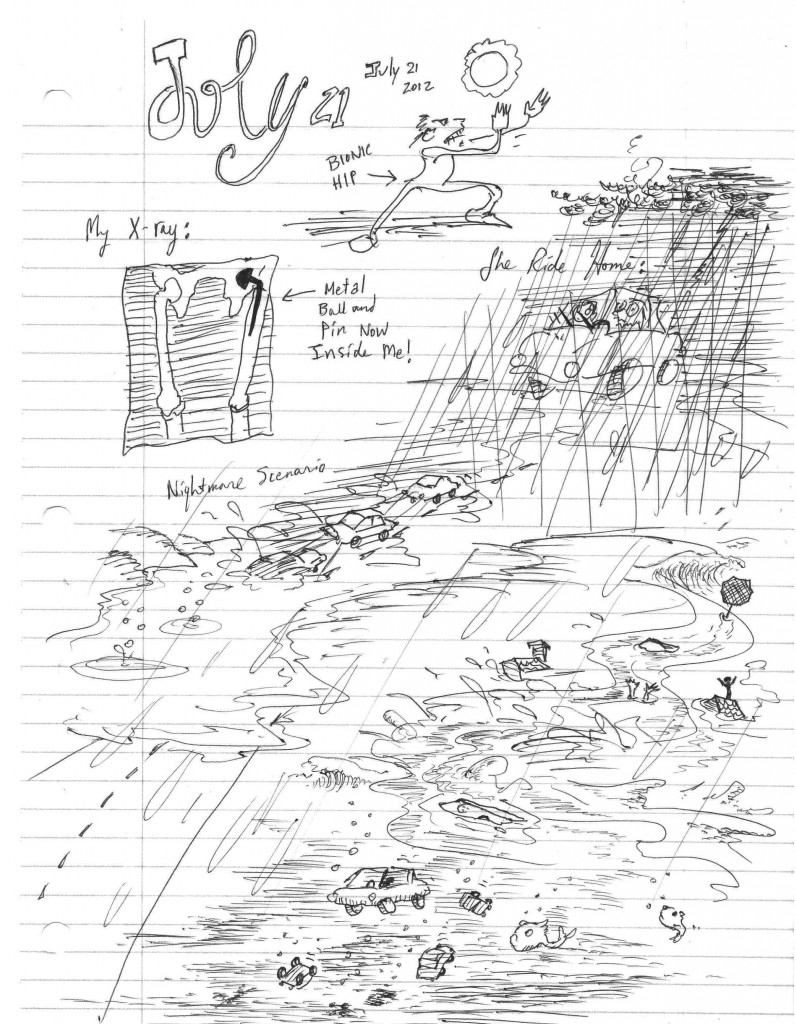 July 21
July 21
2012
BIONIC
HIP
My X-ray:
Metal
Ball and
Pin Now
Inside Me!
The Ride Home:
Nightmare Scenario